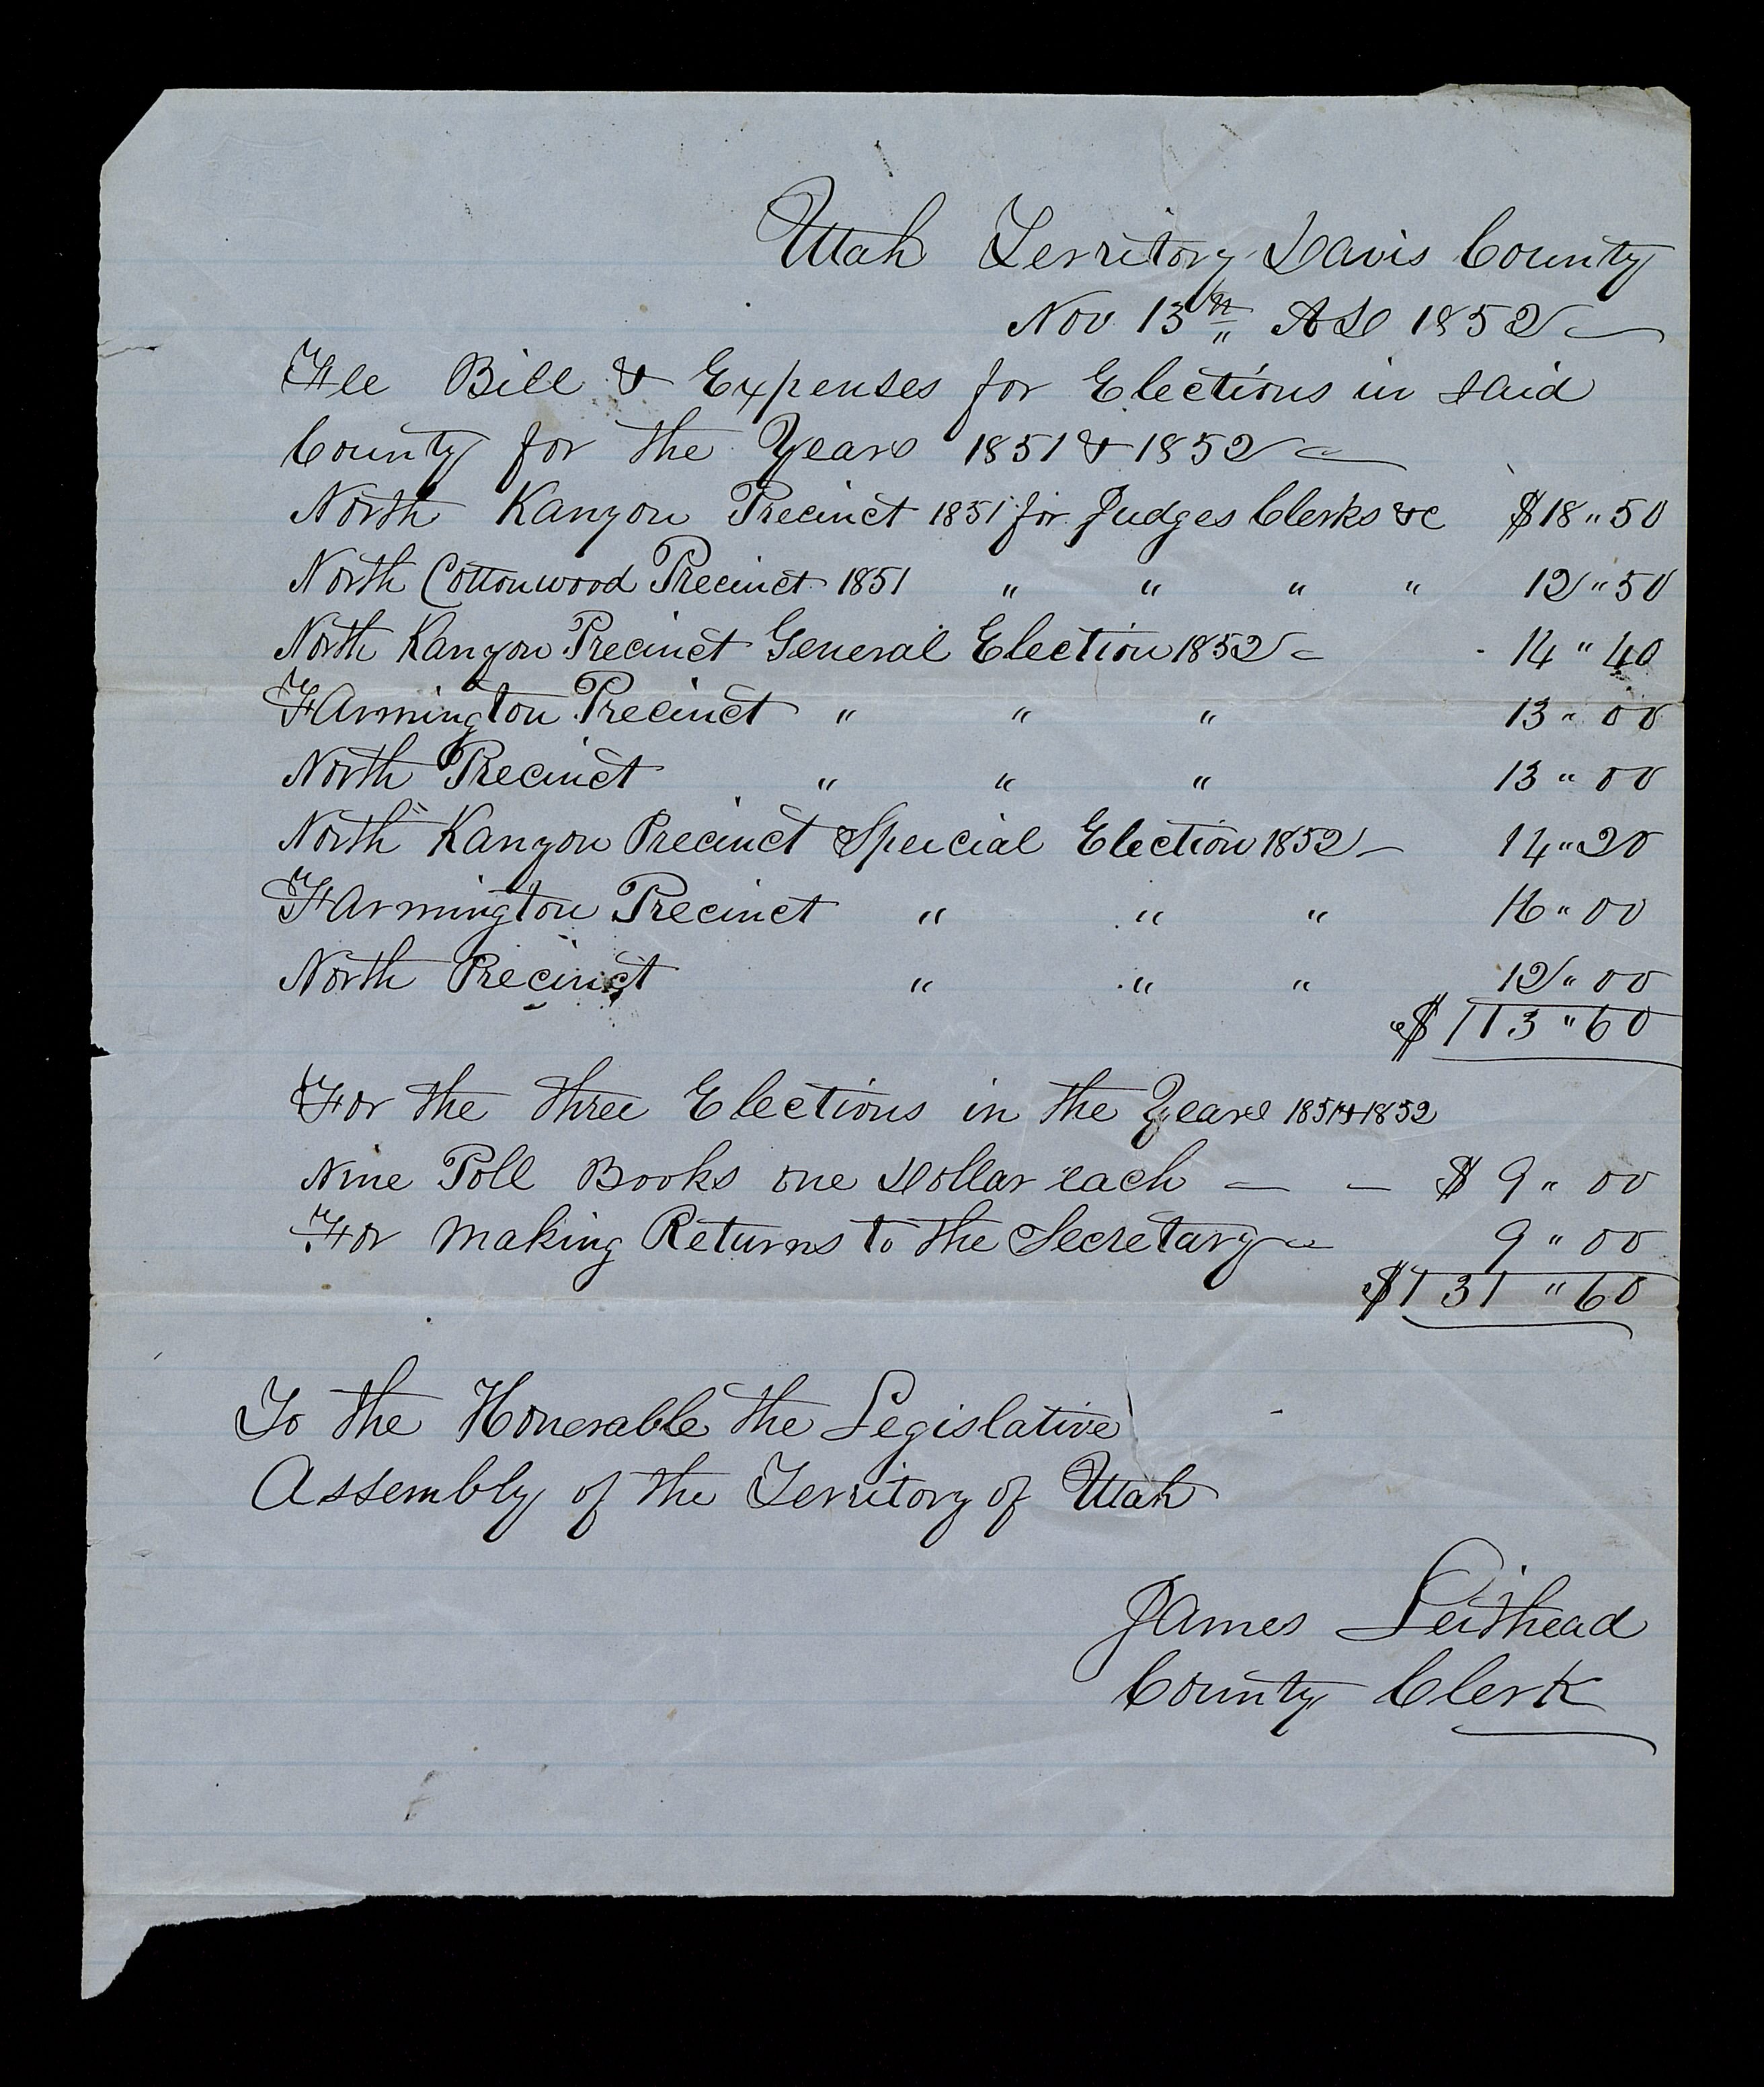 Utah Territory Davis County
Nov 13th AD 1852
Fee Bill & Expenses for Elections in said
County for the Years 1851 & 1852
North Kanyon Precinct 1851 for Judges Clerks &c $18"50
North Cottonwood Precinct 1851 " " " " 12"50
North Kanyon Precinct General Election 1852 - 14"40
Farmington Precinct " " " 13"00
North Precinct " " " 13"00
North Kanyon Precinct Speicial Election 1852 - 14"20
Farmington Precinct " " " 16"00
North Precinct " " " 12"00
$113"60
For the three Elections in the Years 1851 & 1852
Nine Poll Books one Dollar each — — $9"00
For making Returns to the Secretary 9"00
$131"60
To the Honerable the Legislative
Assembly of the Territory of Utah
James Leithead
County Clerk